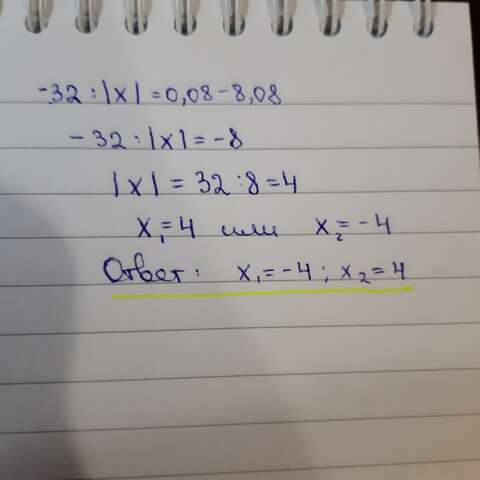 -32 : |x| = 0,08 - 8,08
- 32 : |x| = -8
|x| = 32 : 8 = 4
x₁ = 4 или x₂ = -4
Ответ: x₁ = -4 ; x₂ = 4